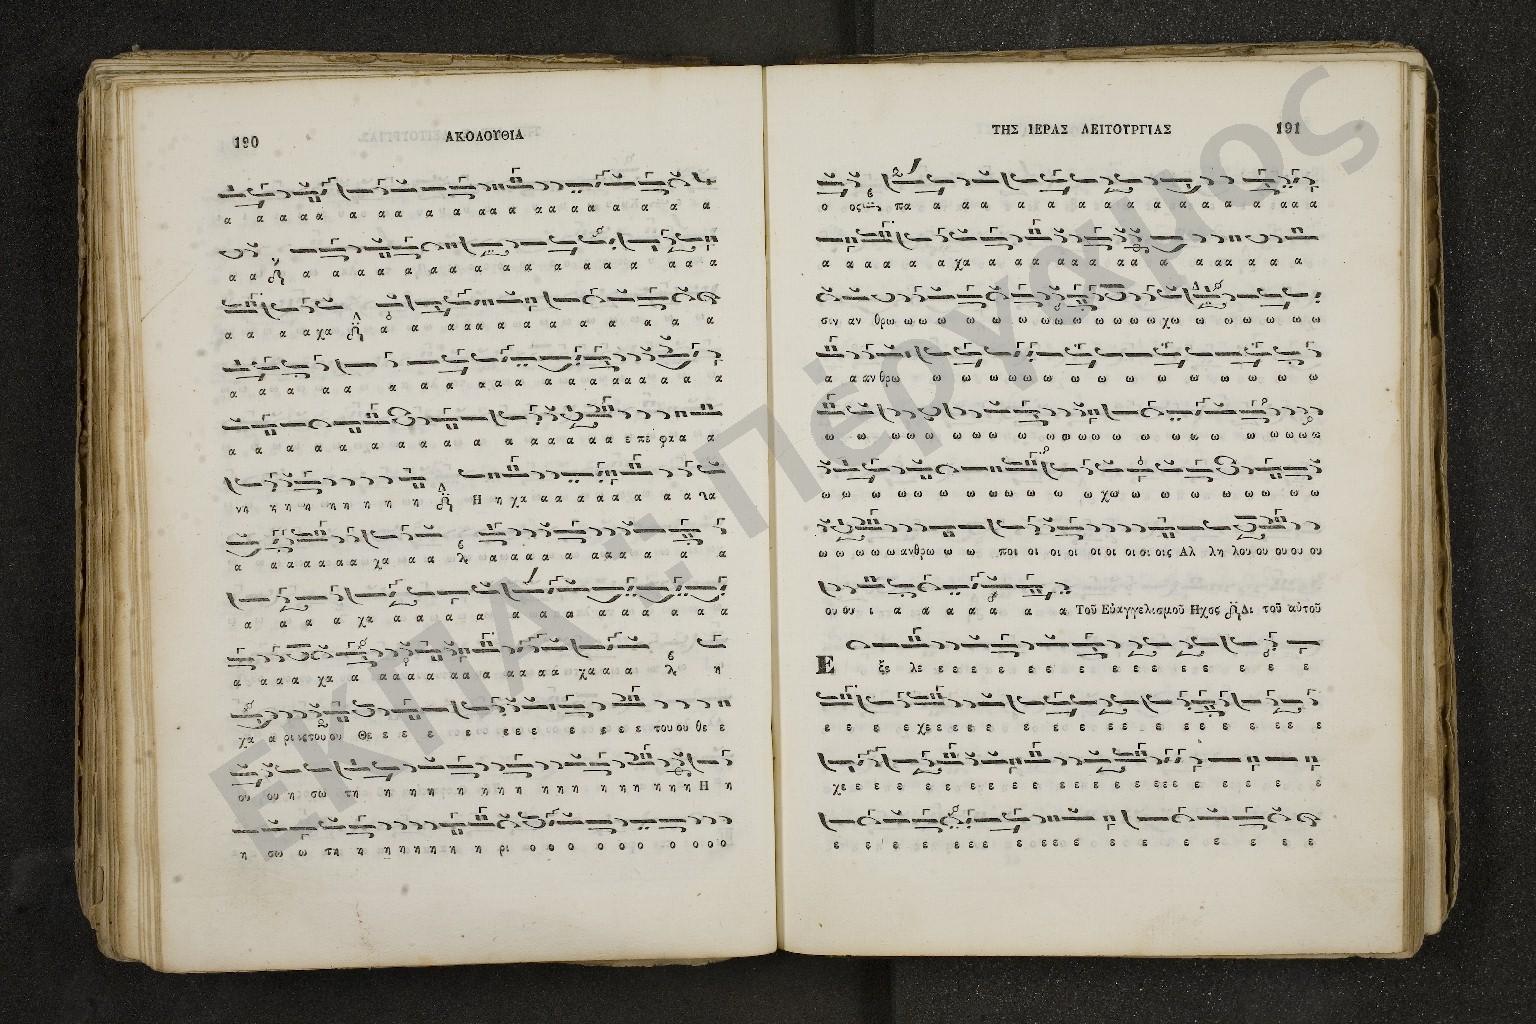 190 ΑΚΟΛΟΥΘΙΑ
α α α α α α α α α α α α α α α α α α α α α
α α α α α α α α α α α α α α α α α
α α α α χα α α α α α α α α α α α α α
α α α α α α α α α α α α α α α α α α α α
α α α α α α α α α α α α α α α ε πε φα α α
νη η η η η η η η Η η χα α α α α α α α α α τα
α α α α α α α χα α α λε α α α α α α α α α α α
α α α α χα α α α α α α α α α α α α α
α α α α χα α α α α α α α α α α α χα α α α λε η
χα α ρι ιετου ου Θε ε ε ε ε ε ε ε ε ε ε ε του ου θε ε
ου ου η σω τη η η η η η η η η η η η η η η Η η
η σω ω τη η η η η η η η η ρι ο ο ο ο ο ο ο ο ο ο
ΤΗΣ ΙΕΡΑΣ ΛΕΙΤΟΥΡΓΙΑΣ 191
ο ος πα α α α α α α α α α α α α α α α
α α α α α α χα α α α α α α α α α α α α α
σιν αν θρω ω ω ω ω ω ω ω ω ω ω ω ω χω ω ω ω ω ω ω
α α αν θρω ω ω ω ω ω ω ω ω ω ω ω ω ω
ω ω ω ω ω ω ω ω ω ω ω ω ω ω ω ω ω ω ω ω ω ω
ω ω ω ω ω ω ω ω ω ω ω ω χω ω ω ω ω ω ω ω ω
ω ω ω ω ω ανθρω ω ω ποι οι οι οι οι οι οι οι οις Αλ λη λου ου ου ου ου
ου ου ι α α α α α α α α Τοῦ Εὐαγγελισμοῦ Ηχος Δι τοῦ αὐτοῦ
Ε ξε λε ε ε ε ε ε ε ε ε ε ε ε ε ε ε
ε ε ε ε χε ε ε ε ε ε ε ε ε ε ε ε ε ε ε ε
χε ε ε ε ε ε ε ε ε ε ε ε ε ε ε ε ε ε ε ε
ε ε ε ε ε ε ε ε ε ε ε ε ε ε ε ε ε
ΕΚΠΑ: Πέργαμος